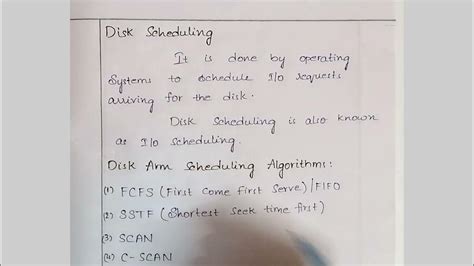 Disk Scheduling
It is done by operating
Systems to schedule I/o requests
arriving for the disk.
Disk Scheduling is also known
as I/o Scheduling.
Disk Arm Scheduling Algorithms:
(1) FCFS (First Come First Serve)/FIFO
(2) SSTF (Shortest Seek time first)
(3) SCAN
(4) C-SCAN